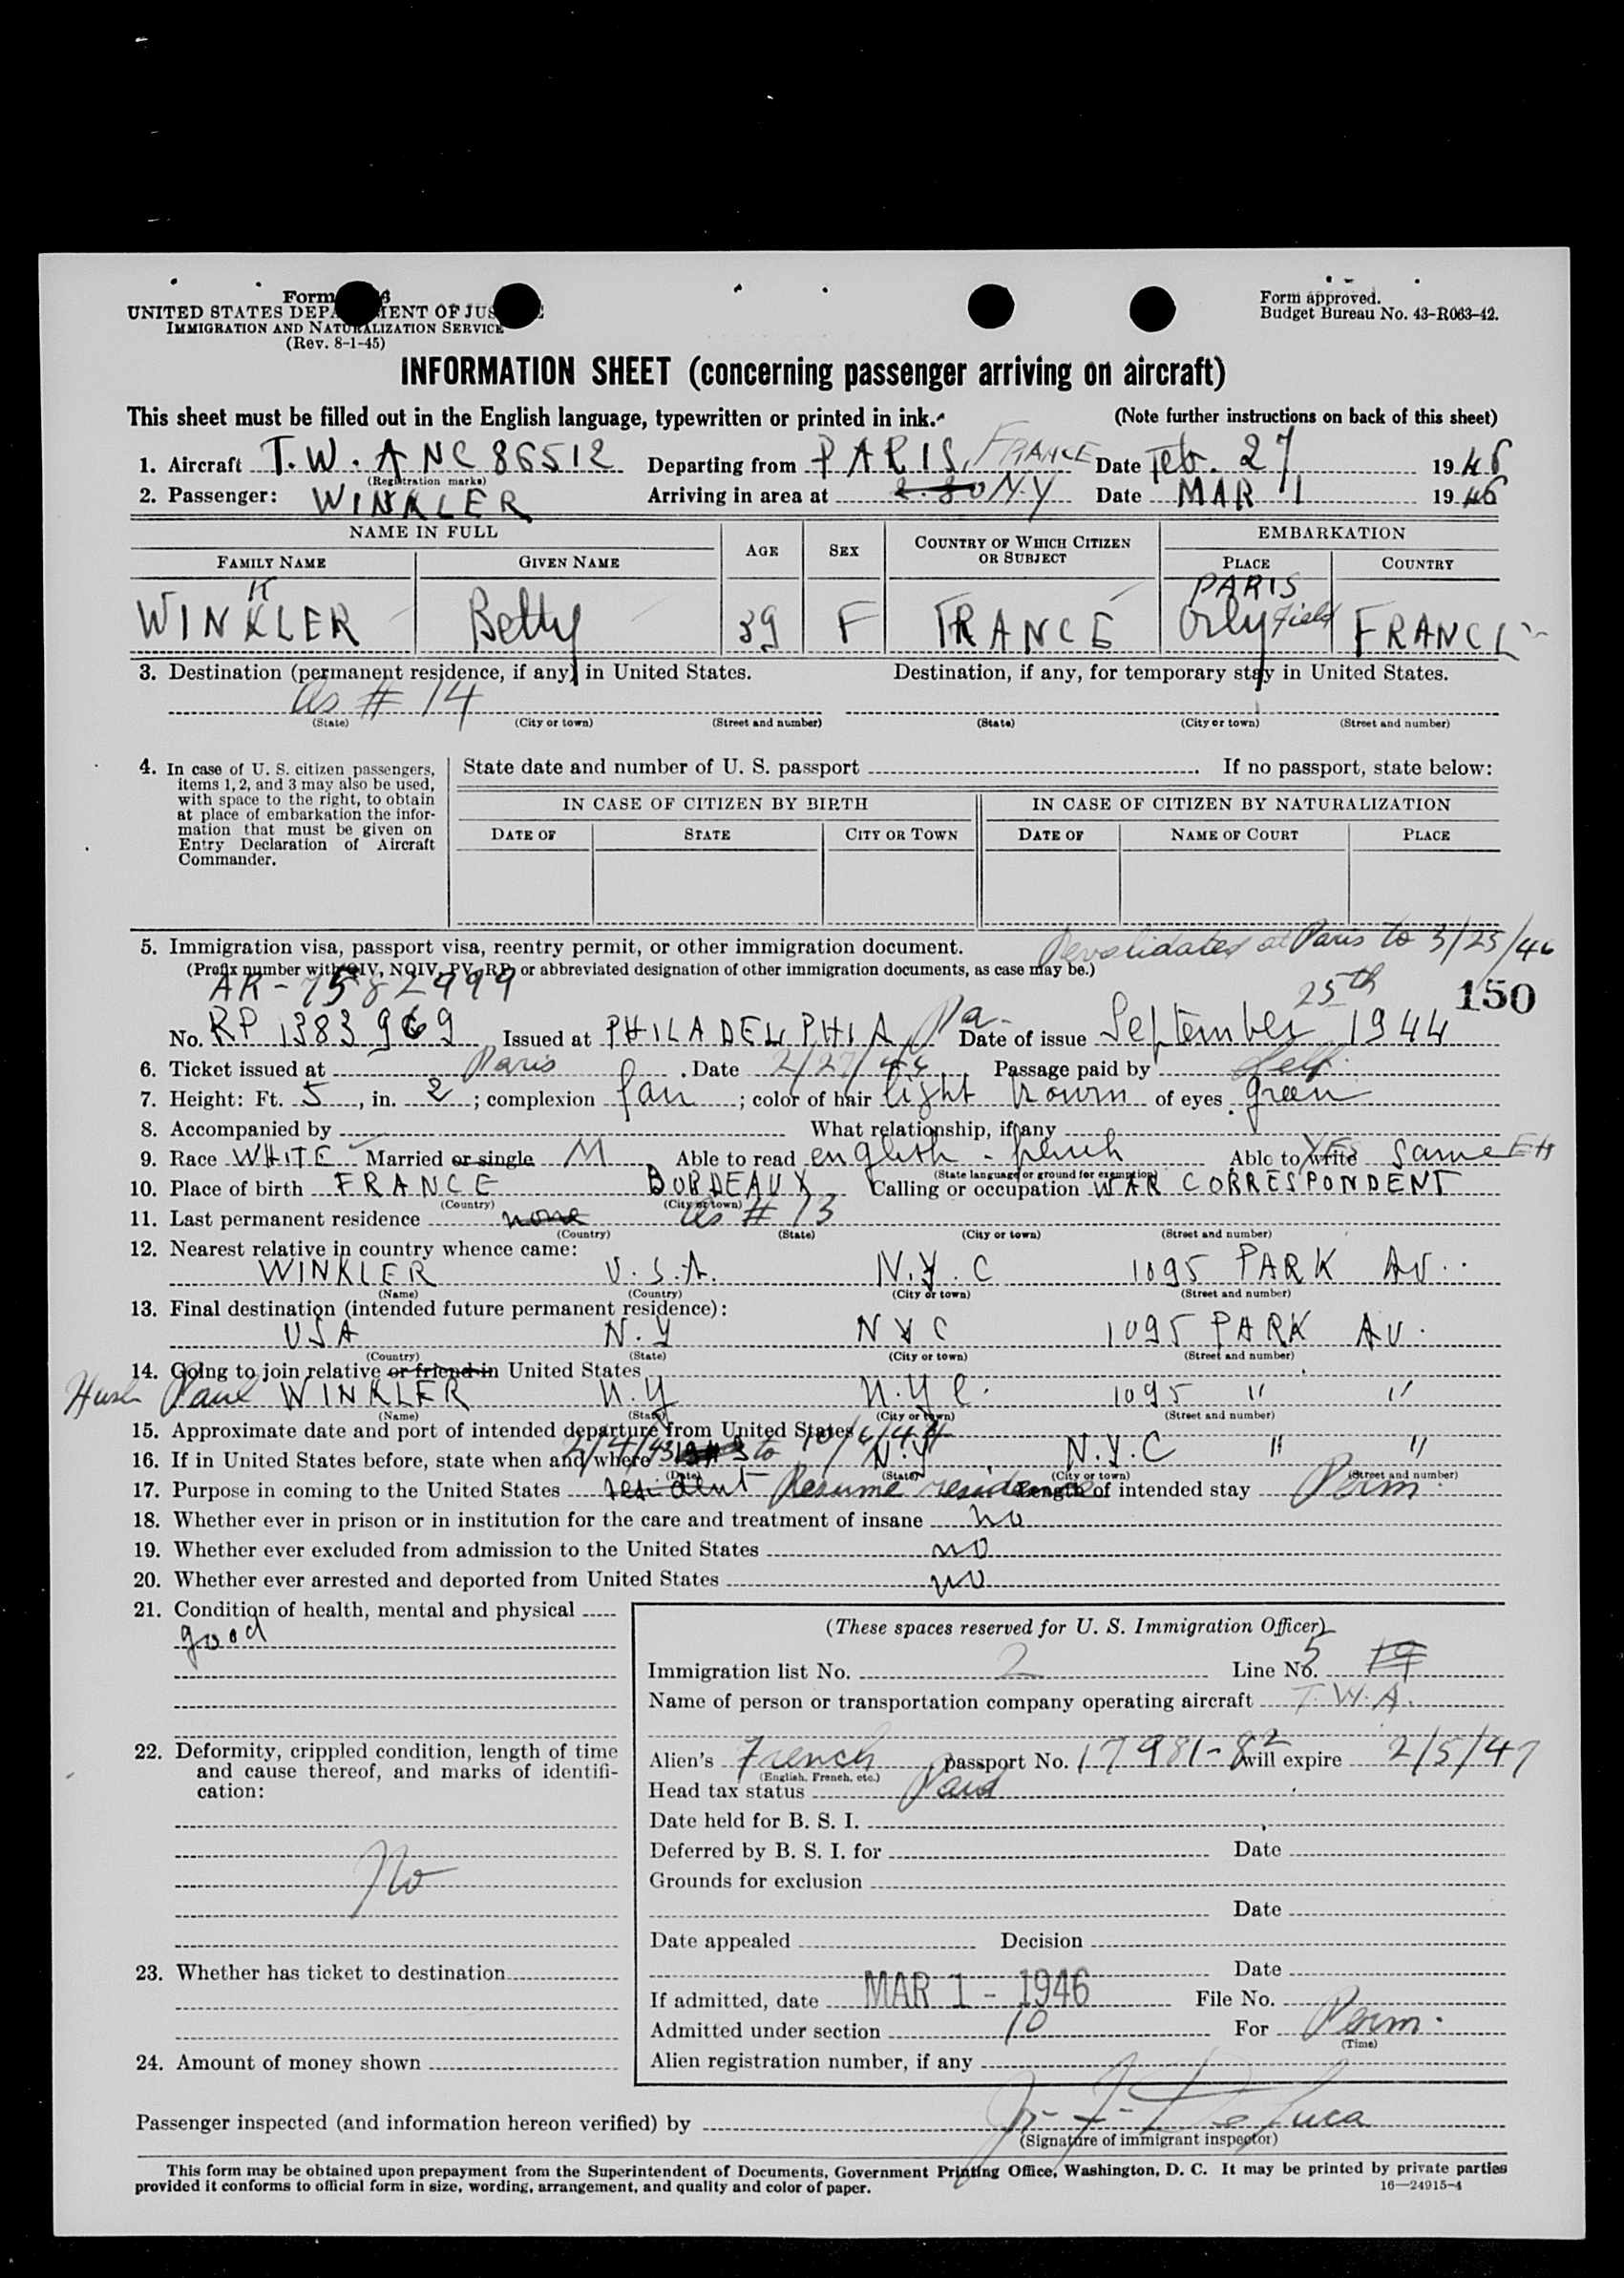 Form
UNITED STATES DEPARTMENT OF JUSTICE
IMMIGRATION AND NATURALIZATION SERVICE
(Rev. 8-1-45)
Form approved.
Budget Bureau No. 43-R063-42.
INFORMATION SHEET (concerning passenger arriving on aircraft)
This sheet must be filled out in the English language, typewritten or printed in ink.
(Note further instructions on back of this sheet)
1. Aircraft T.W.A NC 86512 Departing from PARIS, FRANCE Date Feb. 27 1946
(Registration marks)
2. Passenger: WINKLER Arriving in area at N.Y Date MAR 1 1946
NAME IN FULL AGE SEX COUNTRY OF WHICH CITIZEN OR SUBJECT EMBARKATION
FAMILY NAME GIVEN NAME PLACE COUNTRY
K PARIS
WINKLER Betty 39 F FRANCE Orly Field FRANCE
3. Destination (permanent residence, if any) in United States. Destination, if any, for temporary stay in United States.
As # 14
(State) (City or town) (Street and number) (State) (City or town) (Street and number)
4. In case of U. S. citizen passengers, items 1, 2, and 3 may also be used, with space to the right, to obtain at place of embarkation the information that must be given on Entry Declaration of Aircraft Commander.
State date and number of U. S. passport . If no passport, state below:
IN CASE OF CITIZEN BY BIRTH IN CASE OF CITIZEN BY NATURALIZATION
DATE OF STATE CITY OR TOWN DATE OF NAME OF COURT PLACE
5. Immigration visa, passport visa, reentry permit, or other immigration document. Revalidated at Paris to 3/25/46
(Prefix number with QIV, NQIV, PV, RP, or abbreviated designation of other immigration documents, as case may be.)
AR-7582999 25th 150
No. RP 1383969 Issued at PHILADELPHIA Pa. Date of issue September 1944
6. Ticket issued at Paris . Date 2/27/46 Passage paid by Self
7. Height: Ft. 5, in. 2; complexion fair; color of hair light brown of eyes green
8. Accompanied by What relationship, if any
9. Race WHITE Married or single M Able to read english - french Able to write YES same
(State language or ground for exemption)
10. Place of birth FRANCE BORDEAUX Calling or occupation WAR CORRESPONDENT
(Country) (City or town)
11. Last permanent residence none As # 13
(Country) (State) (City or town) (Street and number)
12. Nearest relative in country whence came:
WINKLER U.S.A. N.Y.C 1095 PARK AV.
(Name) (Country) (City or town) (Street and number)
13. Final destination (intended future permanent residence):
USA N.Y NYC 1095 PARK AV.
(Country) (State) (City or town) (Street and number)
14. Going to join relative or friend in United States
Husb Paul WINKLER N.Y N.Y C. 1095 " "
(Name) (State) (City or town) (Street and number)
15. Approximate date and port of intended departure from United States
16. If in United States before, state when and where 2/4/43 to 10/6/44 N.Y N.Y.C " "
(Date) (State) (City or town) (Street and number)
17. Purpose in coming to the United States resident Resume residence Length of intended stay Perm.
18. Whether ever in prison or in institution for the care and treatment of insane no
19. Whether ever excluded from admission to the United States no
20. Whether ever arrested and deported from United States no
21. Condition of health, mental and physical
good
22. Deformity, crippled condition, length of time and cause thereof, and marks of identification:
No
23. Whether has ticket to destination
24. Amount of money shown
(These spaces reserved for U. S. Immigration Officer)
Immigration list No. 2 Line No. 5 19
Name of person or transportation company operating aircraft T.W.A.
Alien's French passport No. 17981-82 will expire 2/5/47
(English, French, etc.)
Head tax status Paid
Date held for B. S. I.
Deferred by B. S. I. for Date
Grounds for exclusion
Date
Date appealed Decision
Date
If admitted, date MAR 1 - 1946 File No.
Admitted under section 10 For Perm.
(Time)
Alien registration number, if any
Passenger inspected (and information hereon verified) by De Luca
(Signature of immigrant inspector)
This form may be obtained upon prepayment from the Superintendent of Documents, Government Printing Office, Washington, D. C. It may be printed by private parties
provided it conforms to official form in size, wording, arrangement, and quality and color of paper.
16—24915-4